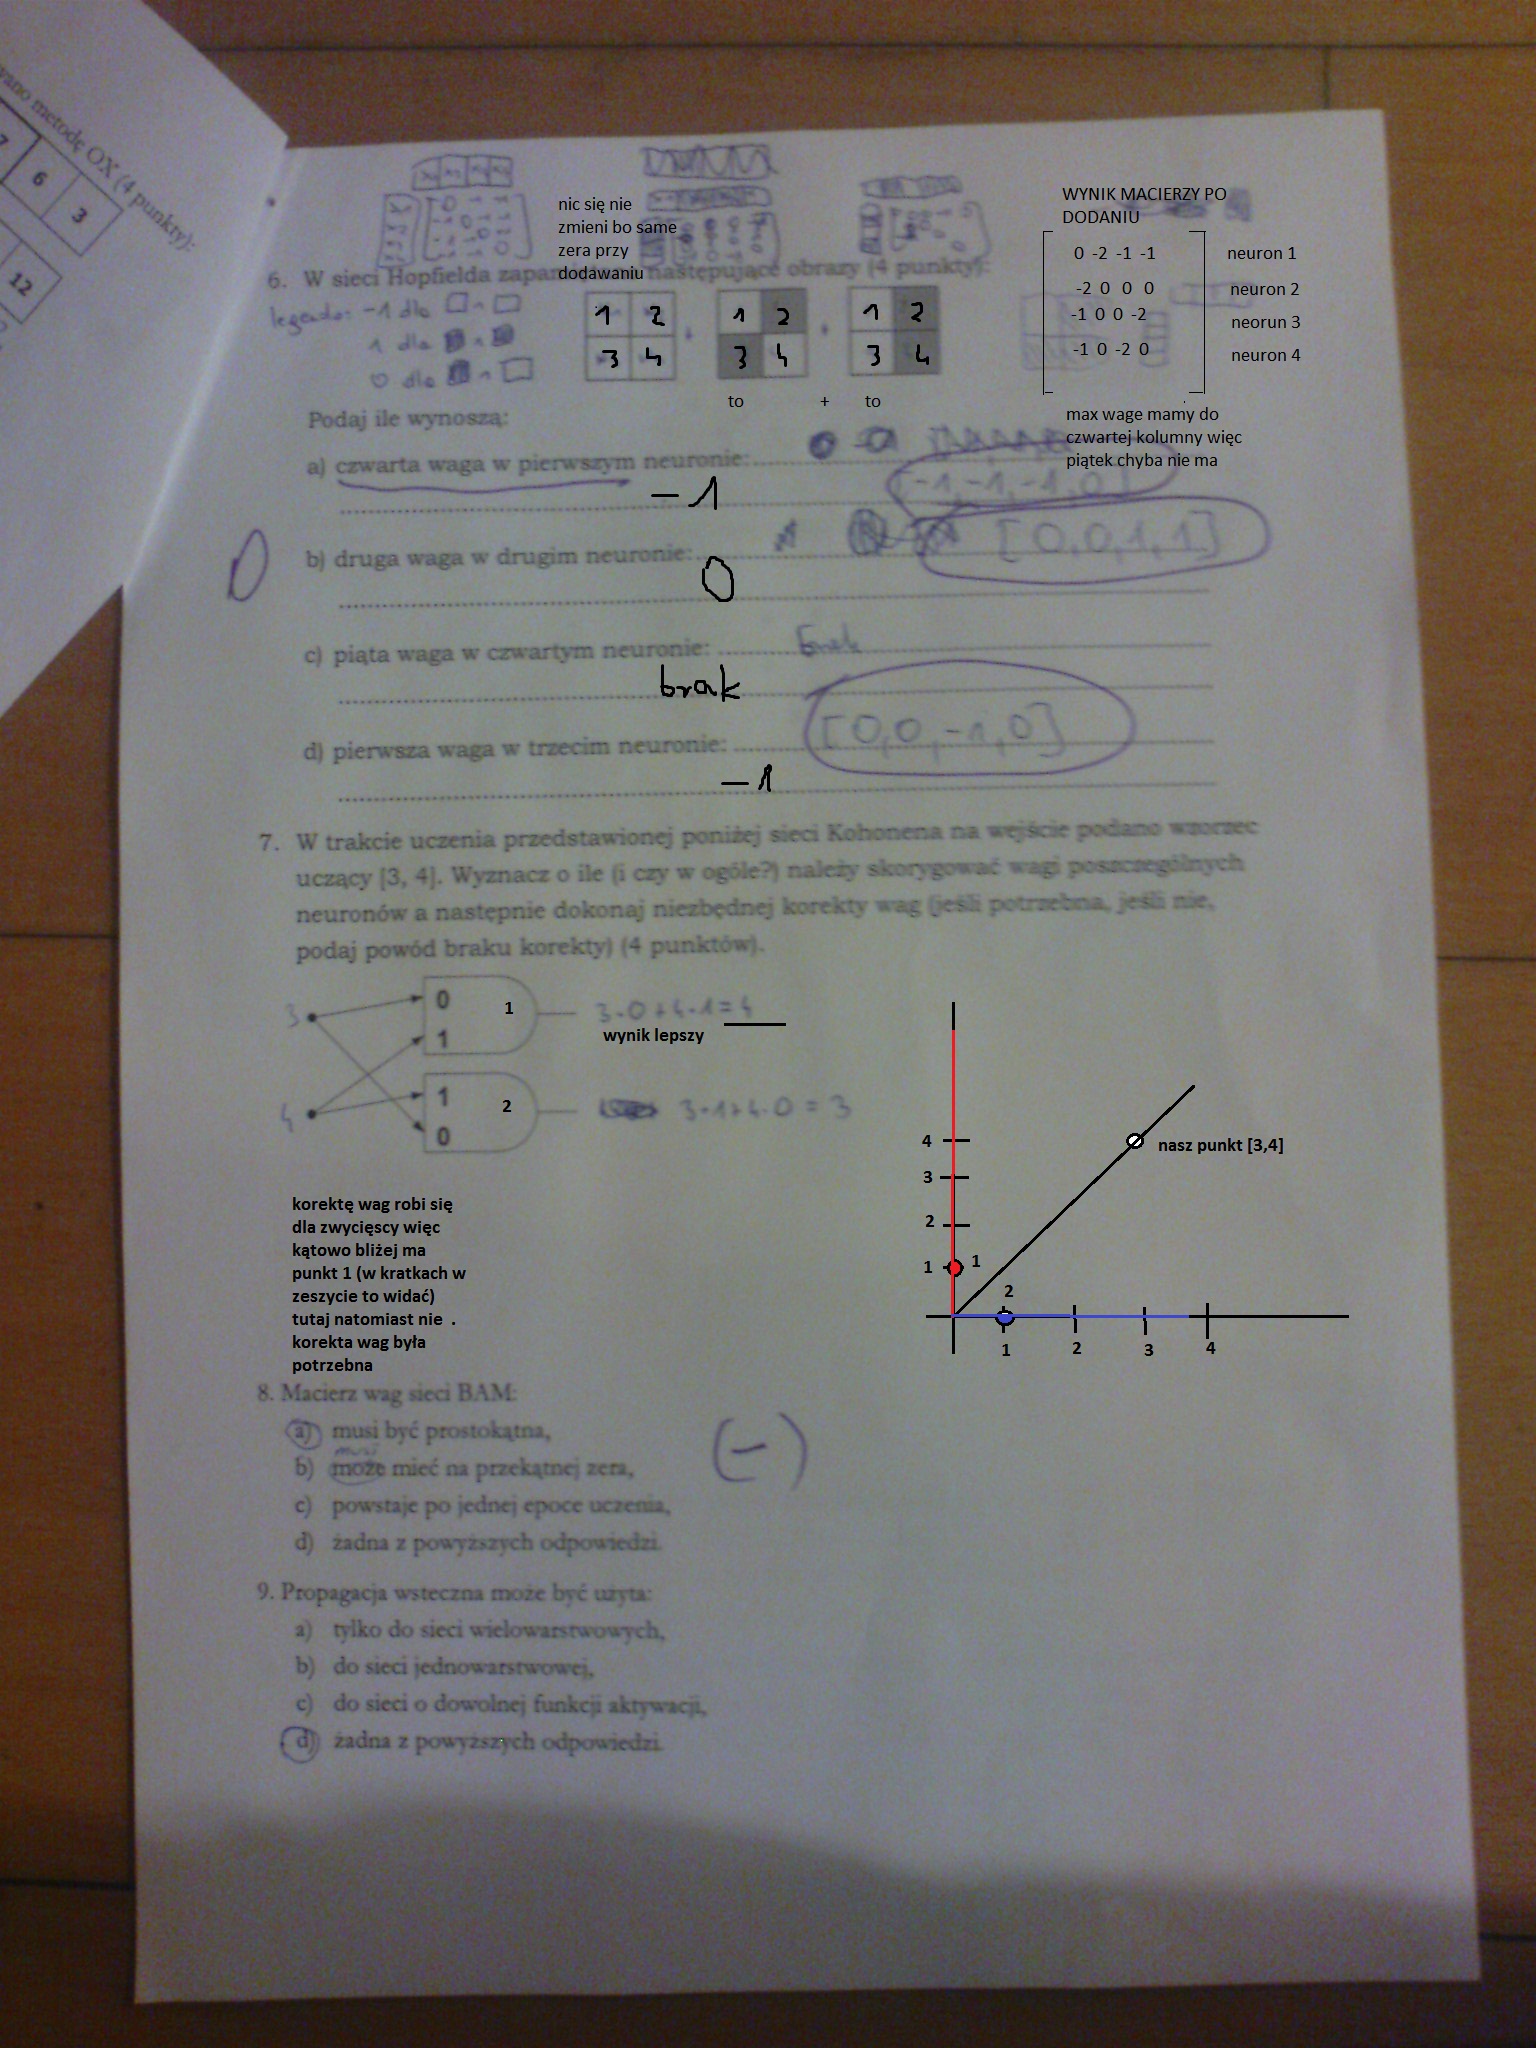 wano metodę OX (4 punkty):
7 6 3
12
nic się nie
zmieni bo same
zera przy
dodawaniu
WYNIK MACIERZY PO
DODANIU
0 -2 -1 -1 neuron 1
-2 0 0 0 neuron 2
-1 0 0 -2 neorun 3
-1 0 -2 0 neuron 4
6. W sieci Hopfielda zapamiętano następujące obrazy (4 punkty):
legenda: -1 dla
1 dla
0 dla
1 2
3 4
1 2
3 4
1 2
3 4
to + to
max wage mamy do
czwartej kolumny więc
piątek chyba nie ma
Podaj ile wynoszą:
a) czwarta waga w pierwszym neuronie:
[-1,-1,-1,0]
-1
b) druga waga w drugim neuronie: [0,0,1,1]
0
0
c) piąta waga w czwartym neuronie: brak
brak
d) pierwsza waga w trzecim neuronie: [0,0,-1,0]
-1
7. W trakcie uczenia przedstawionej poniżej sieci Kohonena na wejście podano wzorzec
uczący [3, 4]. Wyznacz o ile (i czy w ogóle?) należy skorygować wagi poszczególnych
neuronów a następnie dokonaj niezbędnej korekty wag (jeśli potrzebna, jeśli nie,
podaj powód braku korekty) (4 punktów).
3 0 1 3·0+4·1=4
1
wynik lepszy
4 1 2 3·1+4·0=3
0
4 nasz punkt [3,4]
3
2
1 1
2
1 2 3 4
korektę wag robi się
dla zwycięscy więc
kątowo bliżej ma
punkt 1 (w kratkach w
zeszycie to widać)
tutaj natomiast nie .
korekta wag była
potrzebna
8. Macierz wag sieci BAM:
a) musi być prostokątna,
musi
b) może mieć na przekątnej zera,
(-)
c) powstaje po jednej epoce uczenia,
d) żadna z powyższych odpowiedzi.
9. Propagacja wsteczna może być użyta:
a) tylko do sieci wielowarstwowych,
b) do sieci jednowarstwowej,
c) do sieci o dowolnej funkcji aktywacji,
d) żadna z powyższych odpowiedzi.